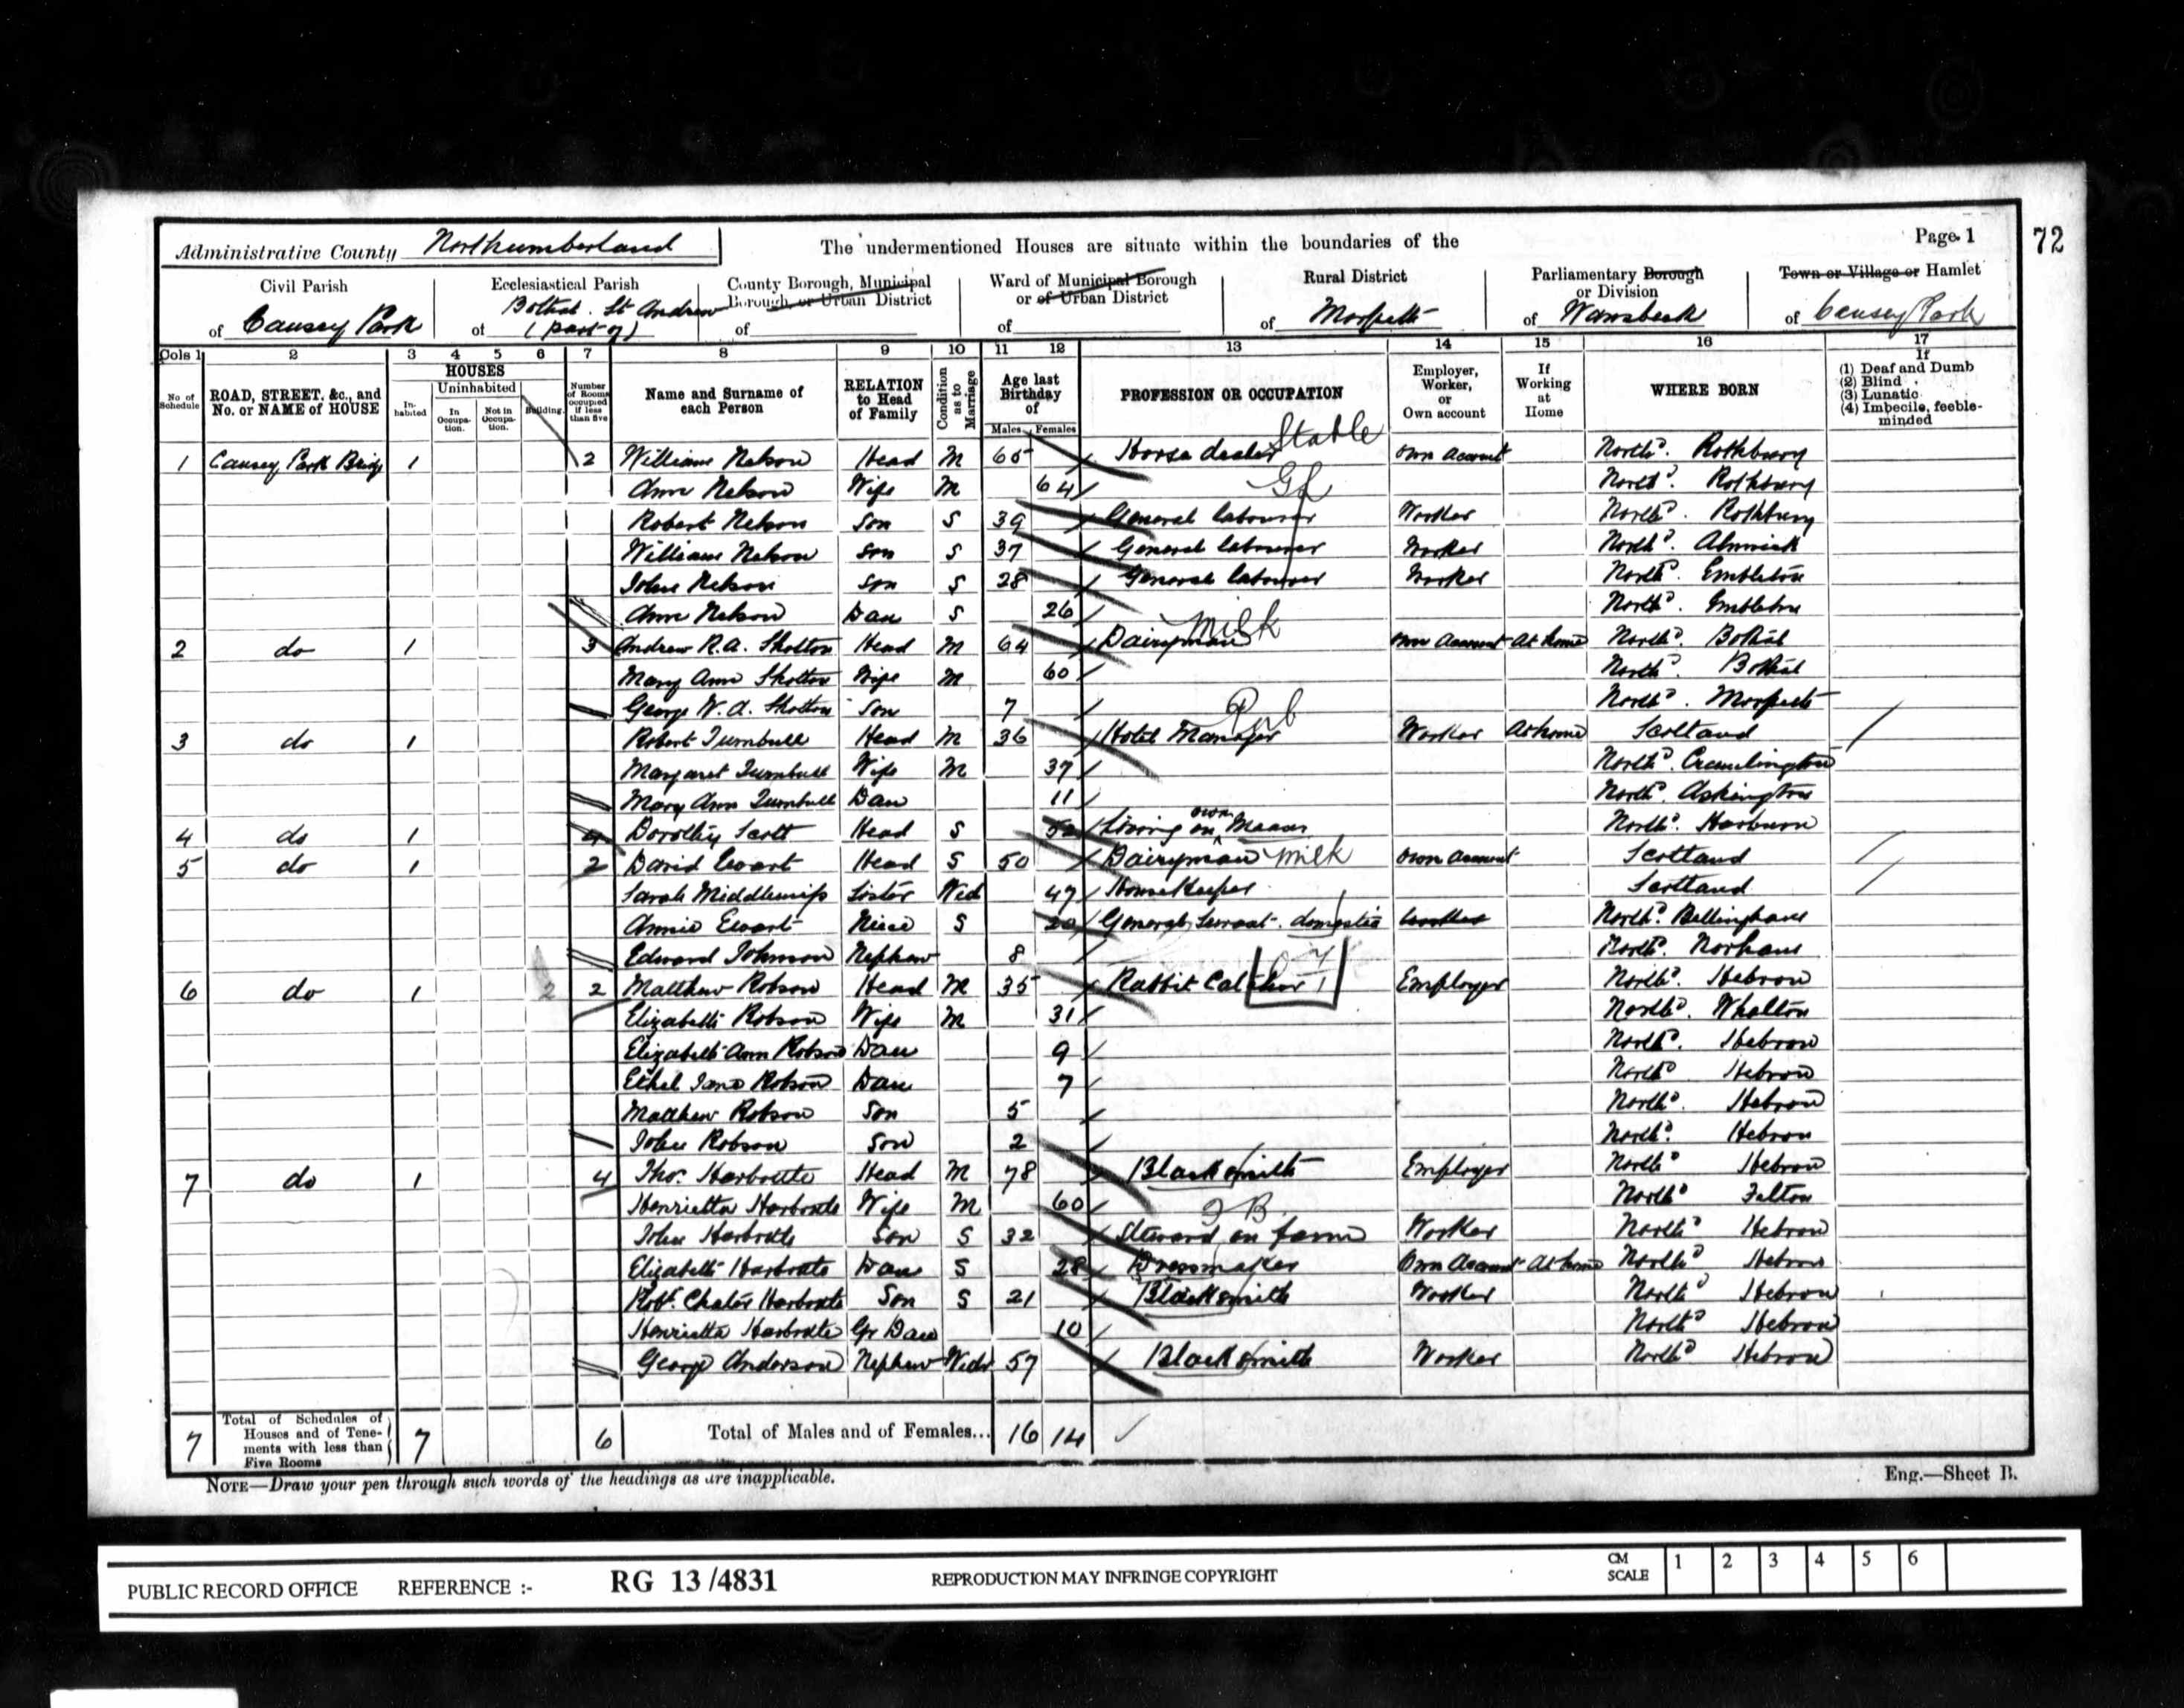 Administrative County Northumberland The undermentioned Houses are situate within the boundaries of the Page 1 72
Civil Parish Ecclesiastical Parish County Borough, Municipal Ward of Municipal Borough Rural District Parliamentary Borough Town or Village or Hamlet
Borough or Urban District or of Urban District or Division
of Causey Park of Bothal St Andrew (part of) of of of Morpeth of Wansbeck of Causey Park
Cols 1 2 3 4 5 6 7 8 9 10 11 12 13 14 15 16 17
No of Schedule ROAD, STREET, &c., and No. or NAME of HOUSE HOUSES Inhabited Uninhabited In Occupation. Not in Occupation. Building. Number of Rooms occupied if less than five Name and Surname of each Person RELATION to Head of Family Condition as to Marriage Age last Birthday of Males Females PROFESSION OR OCCUPATION Employer, Worker, or Own account If Working at Home WHERE BORN If (1) Deaf and Dumb (2) Blind (3) Lunatic (4) Imbecile, feeble-minded
1 Causey Park Bridge 1 2 William Nelson Head M 65 Horse dealer Stable own account North'd. Rothbury
Ann Nelson Wife M 64 North'd. Rothbury
Robert Nelson Son S 39 General labourer Worker North'd. Rothbury
William Nelson Son S 37 General labourer Worker North'd. Alnwick
John Nelson Son S 28 General labourer Worker North'd. Embleton
Ann Nelson Dau S 26 North'd. Embleton
2 do 1 3 Andrew R.A. Shotton Head M 64 Dairyman Milk own account At home North'd. Bothal
Mary Ann Shotton Wife M 60 North'd. Bothal
George W.A. Shotton Son 7 North'd. Morpeth
3 do 1 Robert Turnbull Head M 36 Hotel Manager Pub Worker At home Scotland
Margaret Turnbull Wife M 37 North'd. Cramlington
Mary Ann Turnbull Dau 11 North'd. Ashington
4 do 1 4 Dorothy Scott Head S Living on own Means North'd. Harburn
5 do 1 2 David Ewart Head S 50 Dairyman milk own account Scotland
Sarah Middlemiss Sister Wid 47 Housekeeper Scotland
Annie Ewart Niece S 20 General Servant domestic North'd. Bellingham
Edward Johnson Nephew 8 North'd. Norham
6 do 1 2 Matthew Robson Head M 35 Rabbit Catcher Employer North'd. Hebron
Elizabeth Robson Wife M 31 North'd. Whalton
Elizabeth Ann Robson Dau 9 North'd. Hebron
Ethel Jane Robson Dau 7 North'd Hebron
Matthew Robson Son 5 North'd. Hebron
John Robson Son 2 North'd. Hebron
7 do 1 4 Thos. Harbottle Head M 78 Blacksmith Employer North'd Hebron
Henrietta Harbottle Wife M 60 North'd Felton
John Harbottle Son S 32 Steward on farm Worker North'd Hebron
Elizabeth Harbottle Dau S 28 Dressmaker Own Account At home North'd Hebron
Robt. Chater Harbottle Son S 21 Blacksmith Worker North'd Hebron
Henrietta Harbottle Gr Dau 10 North'd Hebron
George Anderson Nephew Widr 57 Blacksmith Worker North'd Hebron
7 Total of Schedules of Houses and of Tenements with less than Five Rooms 7 6 Total of Males and of Females... 16 14
NOTE—Draw your pen through such words of the headings as are inapplicable. Eng.—Sheet B.
PUBLIC RECORD OFFICE REFERENCE :- RG 13/4831 REPRODUCTION MAY INFRINGE COPYRIGHT CM SCALE 1 2 3 4 5 6